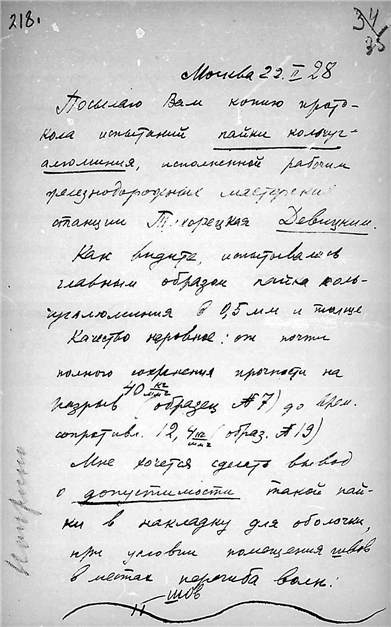 218.
34
35
Москва 22.II 28
Посылаю Вам копию прото-
кола испытаний пайки кольчуг-
алюминия, исполненной рабочим
железнодорожных мастерских
станции Тихорецкая Девицким.
Как видите, испытывалась
главным образом пайка коль-
чугалюминия в 0,5 мм и толще
Качество неровное: от почти
полного сохранения прочности на
разрыв 40 кг/мм² (образец №7) до врем.
сопротивл. 12,4 кг/мм² (образ. №19)
Мне хочется сделать вывод
о допустимости такой пай-
ки в накладку для оболочки,
при условии помещения швов
в местах перегиба волн:
шов